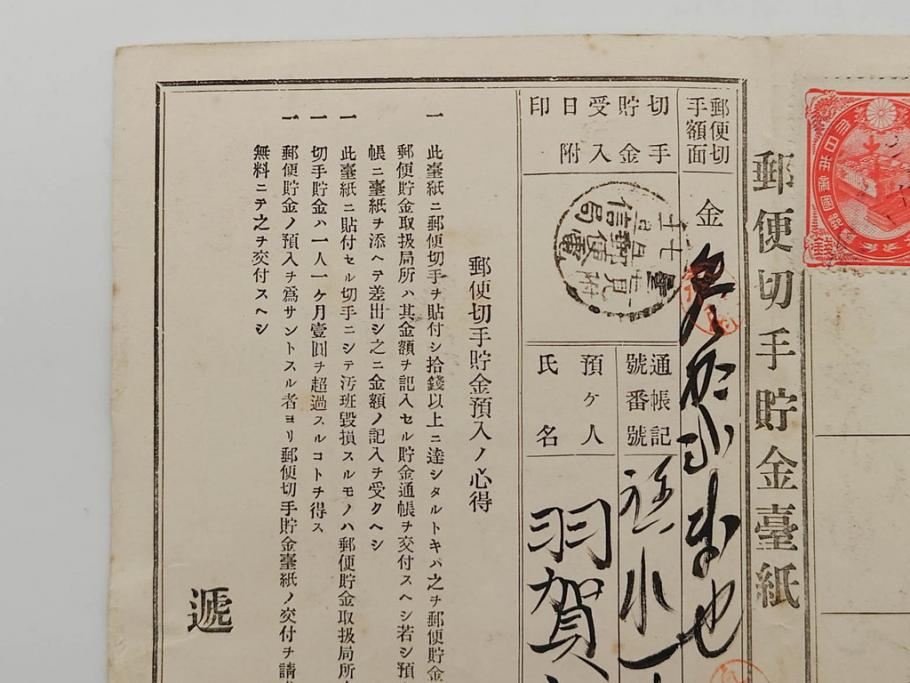 大日本帝國郵
郵便切手貯金臺紙
郵便切手額面
金
切手貯金受入日附印
通帳記號番號
預ヶ人氏名
羽賀
郵便切手貯金預入ノ心得
一 此臺紙ニ郵便切手ヲ貼付シ拾錢以上ニ達シタルトキハ之ヲ郵便貯金
郵便貯金取扱局所ハ其金額ヲ記入セル貯金通帳ヲ交付スヘシ若シ預
帳ニ臺紙ヲ添ヘテ差出シ之ニ金額ノ記入ヲ受クヘシ
一 此臺紙ニ貼付セル切手ニシテ汚斑毀損スルモノハ郵便貯金取扱局所
一 切手貯金ハ一人一ヶ月壹圓ヲ超過スルコトヲ得ス
一 郵便貯金ノ預入ヲ爲サントスル者ヨリ郵便切手貯金臺紙ノ交付ヲ請
無料ニテ之ヲ交付スヘシ
遞